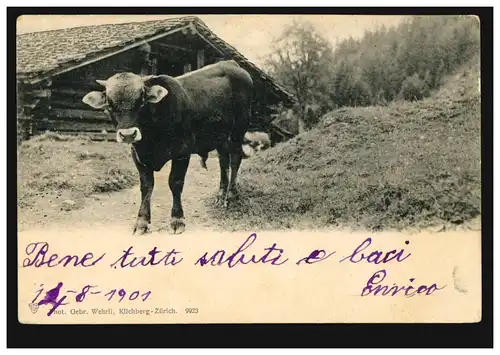 Bene tutti saluti e baci
-8-1901 Enrico
Phot. Gebr. Wehrli, Kilchberg-Zürich. 9923